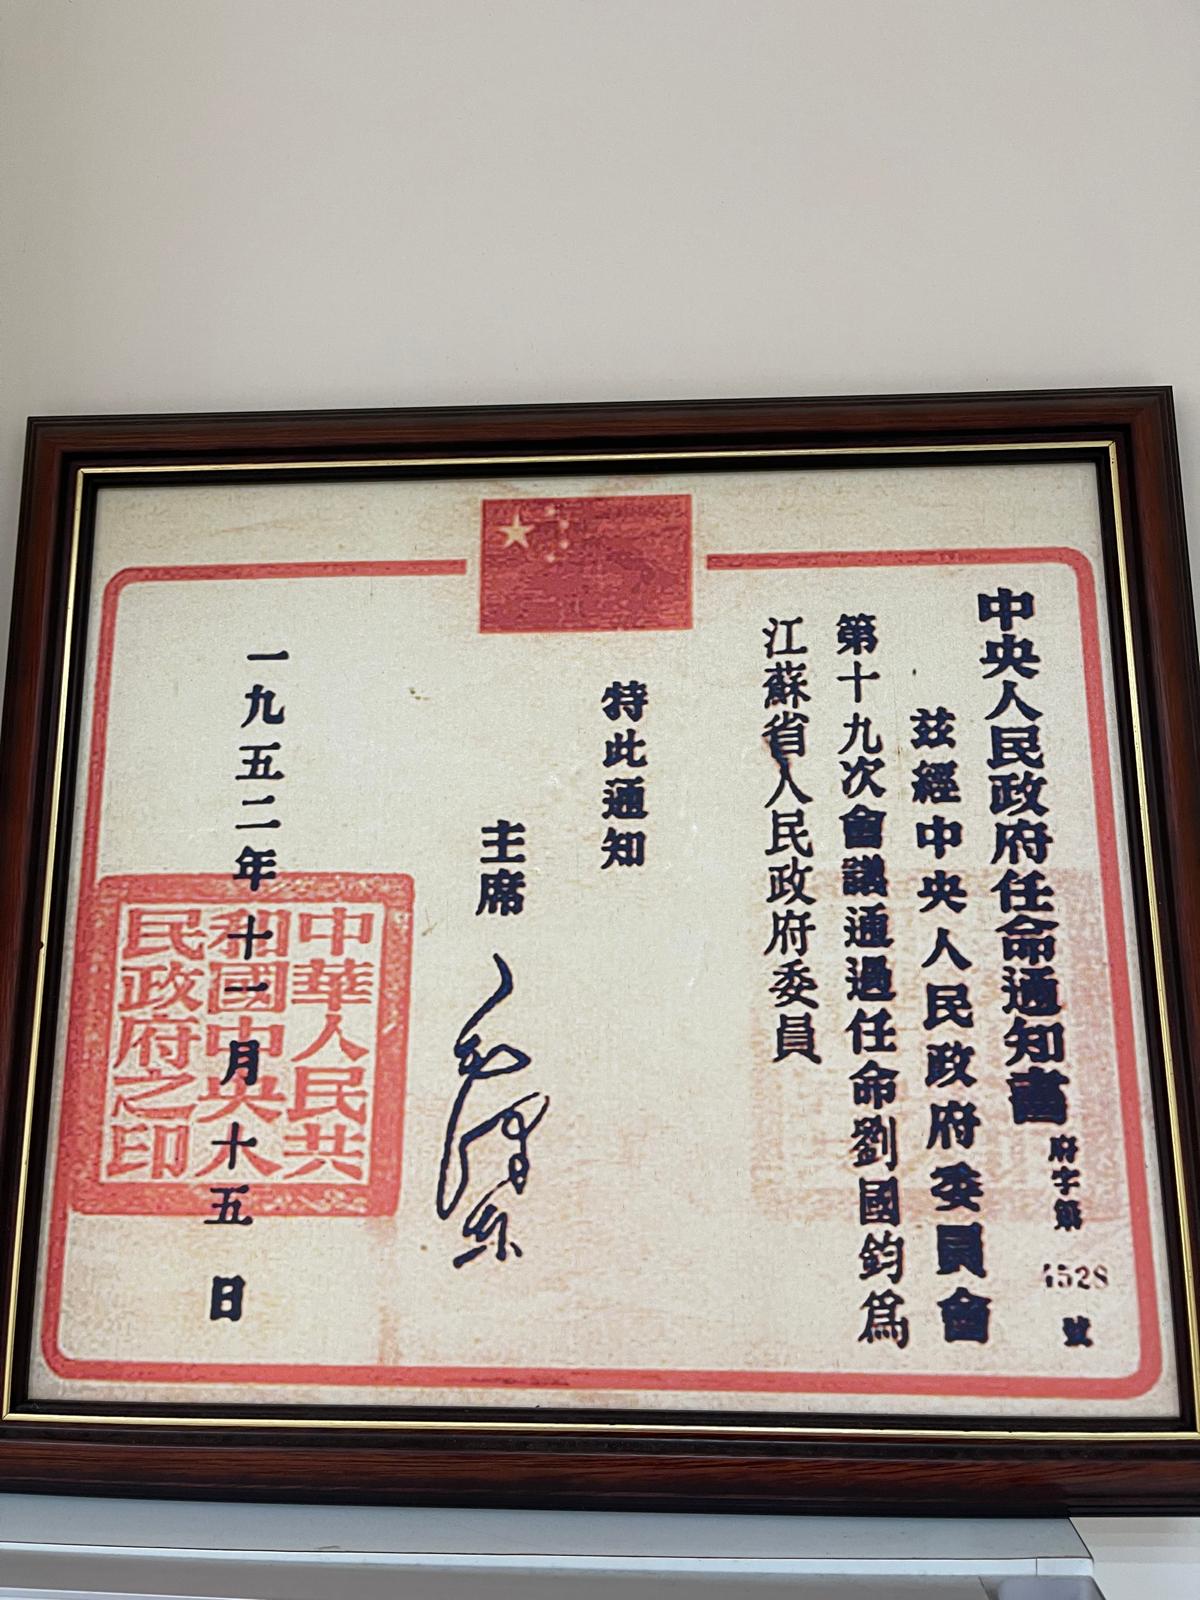 中央人民政府任命通知書 府字第 4528 號
茲經中央人民政府委員會
第十九次會議通過任命劉國鈞爲
江蘇省人民政府委員
特此通知
主席 毛澤东
一九五二年十一月十五日
中華人民共
和國中央人
民政府之印